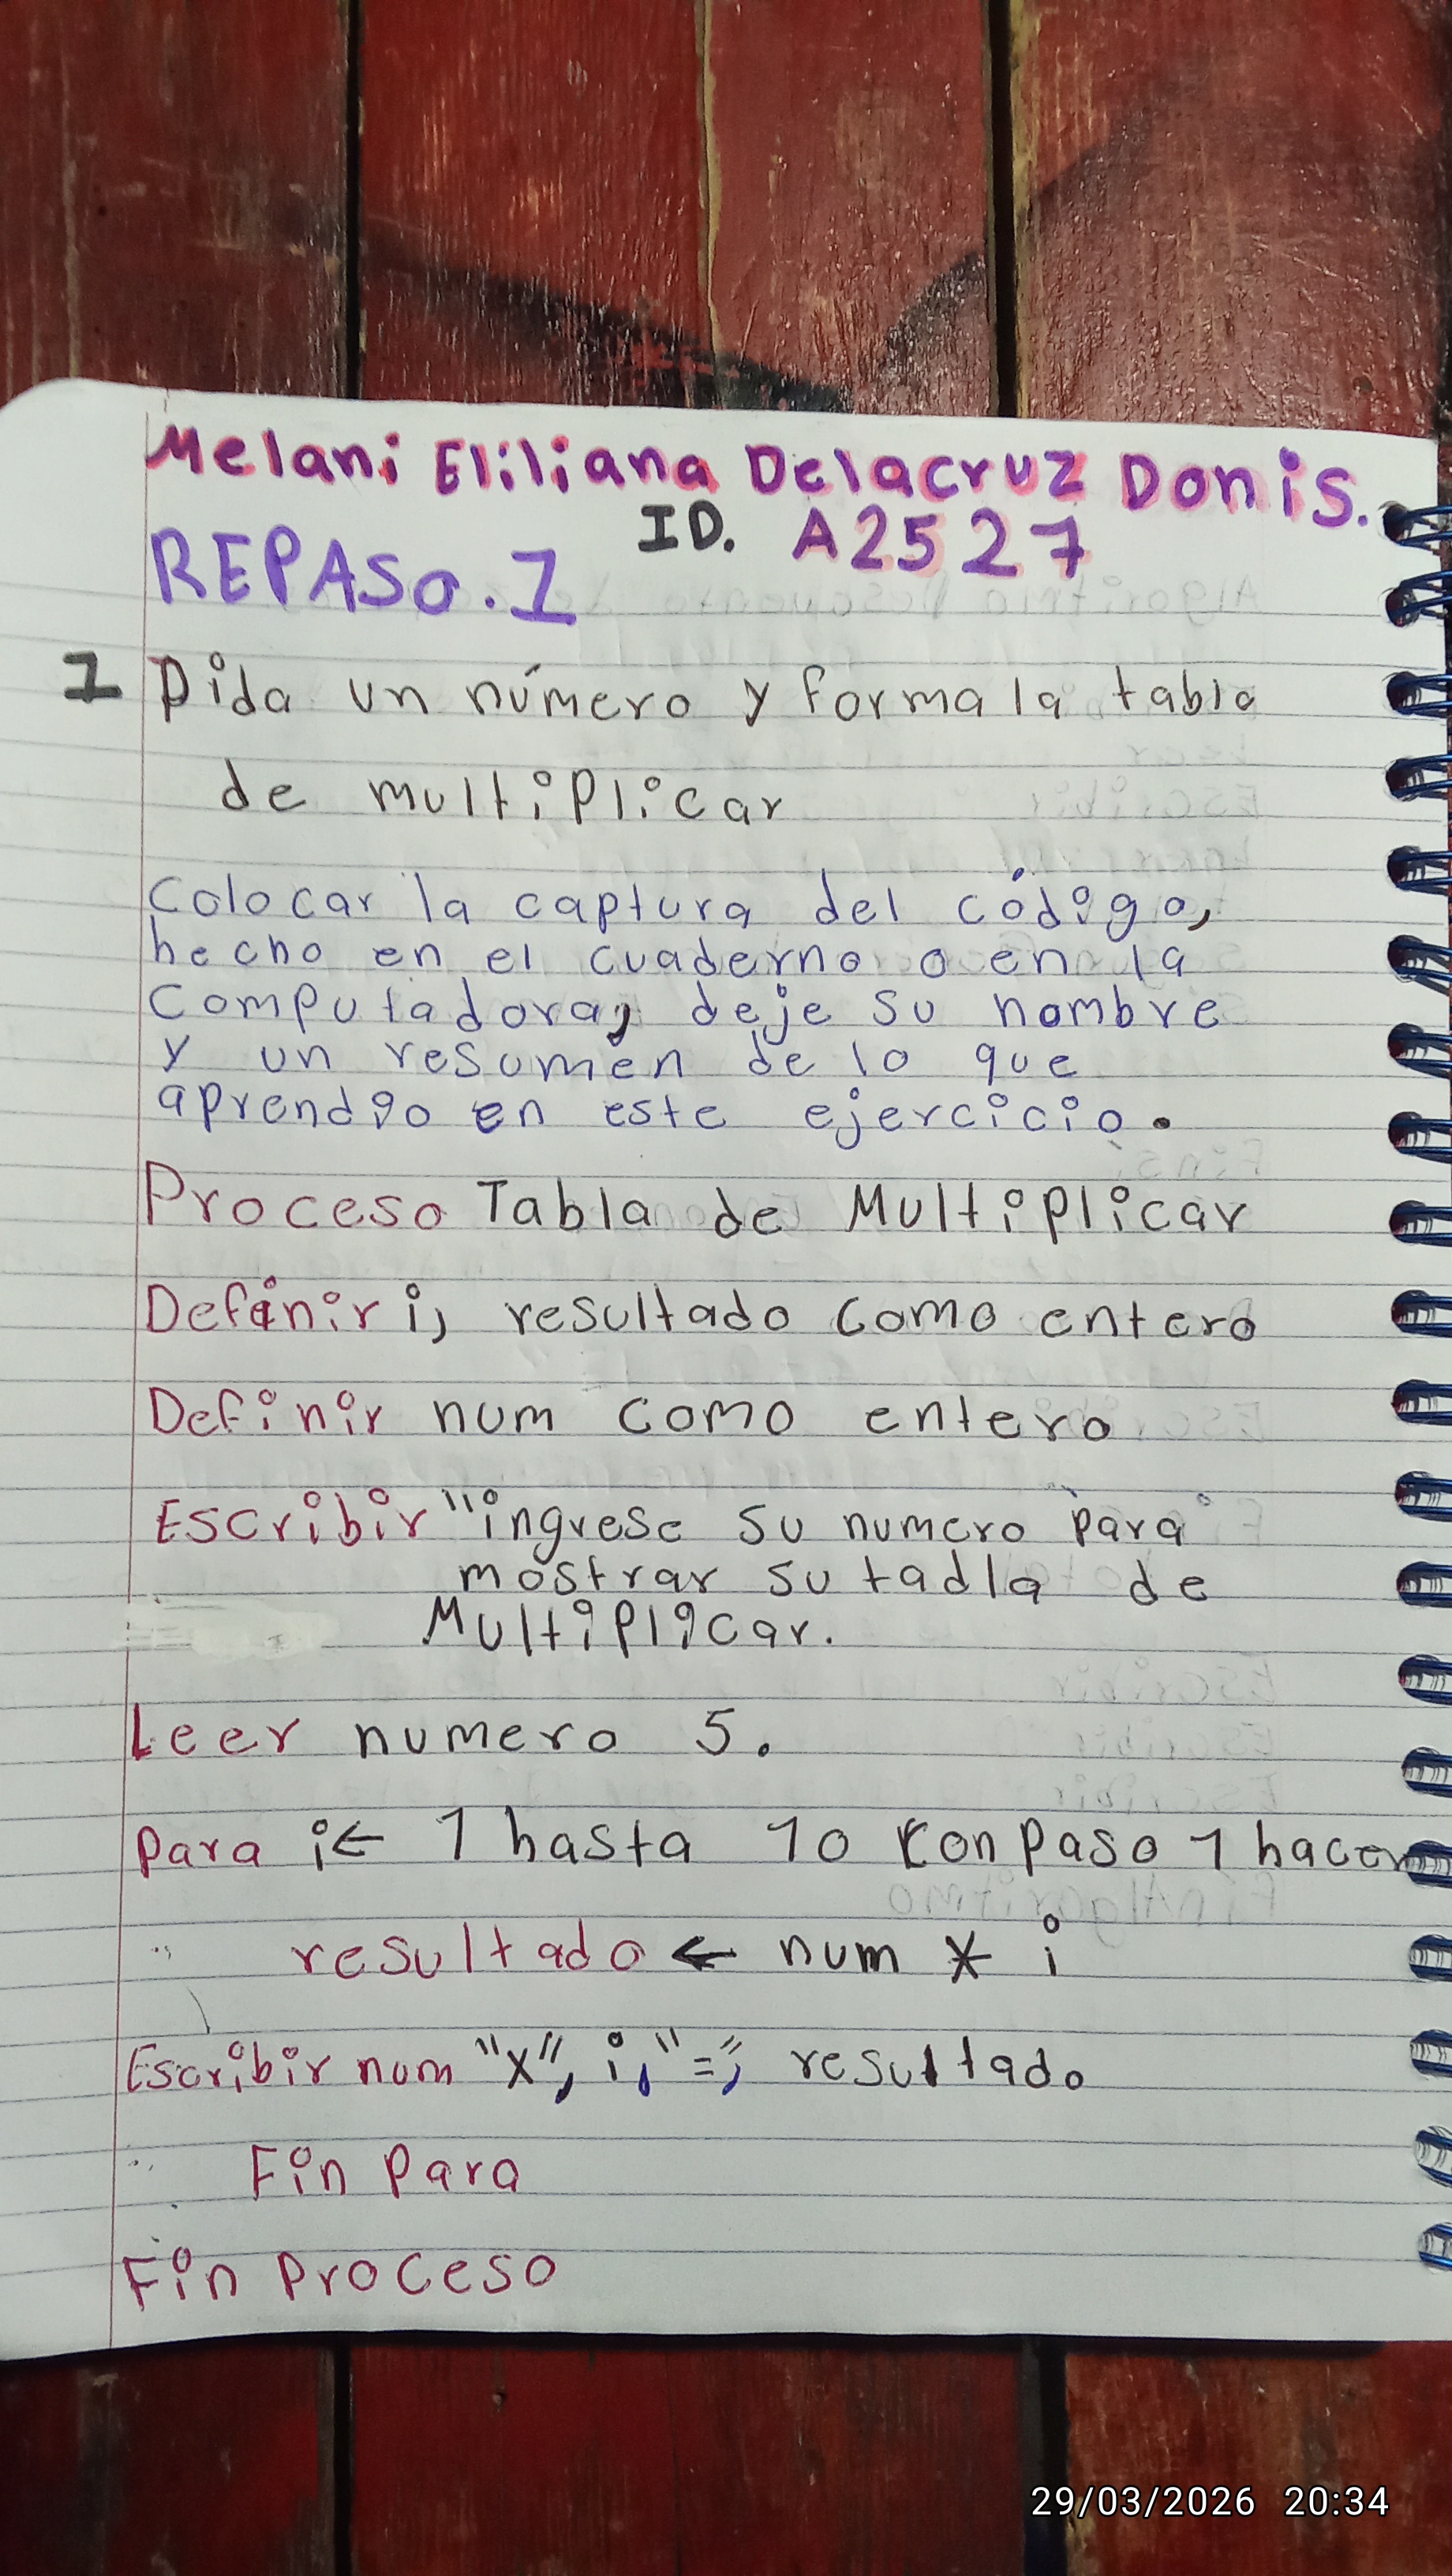 Melani Eliliana Delacruz Donis.
ID. A2527
REPASO. 1
1 Pida un número y forma la tabla
de multiplicar
Colocar la captura del código,
hecho en el cuaderno o en la
Computadora, deje su nombre
y un resumen de lo que
aprendio en este ejercicio.
Proceso Tabla de Multiplicar
Definir i, resultado como entero
Definir num como entero
Escribir "ingrese su numero para
mostrar su tadla de
Multiplicar.
Leer numero 5.
Para i← 1 hasta 10 con paso 1 hacer
resultado ← num * i
Escribir num "x", i, "=", resultado
Fin Para
Fin Proceso
29/03/2026 20:34